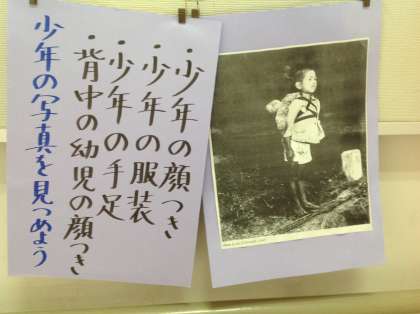 ・少年の顔つき
・少年の服装
・少年の手足
・背中の幼児の顔つき
少年の写真を見つめよう